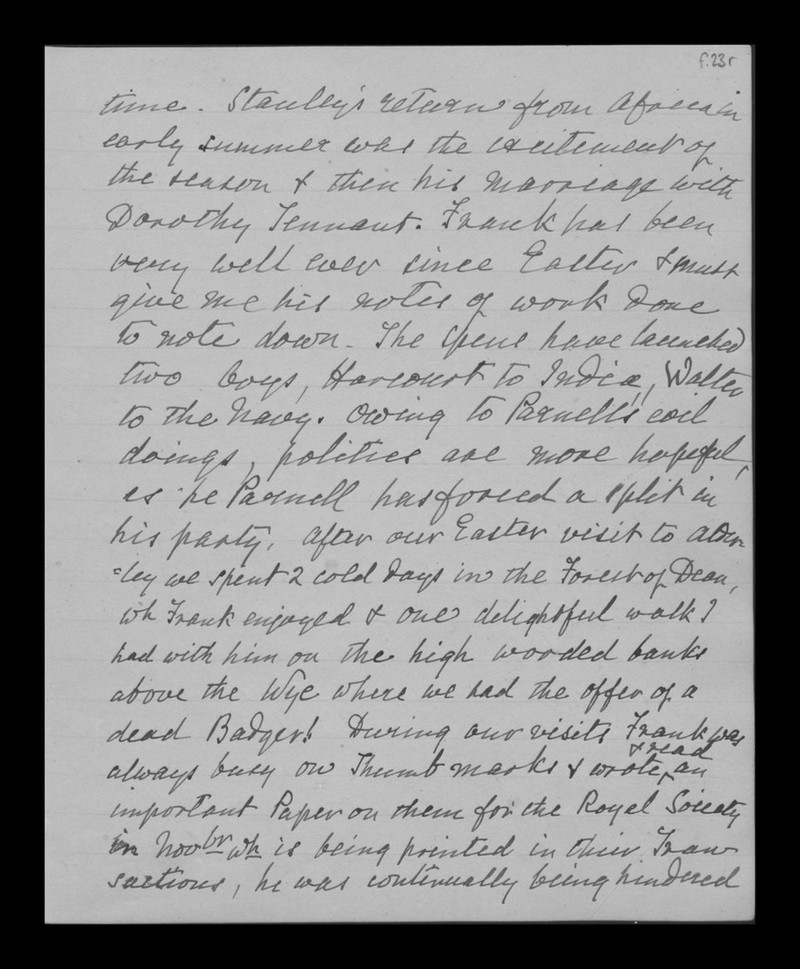 f.23r
time. Stanley's return from Africa in
early summer was the excitement of
the season & then his marriage with
Dorothy Tennant. Frank has been
very well ever since Easter & must
give me his notes of work done
to note down. The Spens have launched
two boys, Harcourt to India, Walter
to the Navy. Owing to Parnell's evil
doings, politics are more hopeful,
as he Parnell has forced a split in
his party. After our Easter visit to
=ley we spent 2 cold days in the Forest of Dean,
wh Frank enjoyed & one delightful walk I
had with him on the high wooded banks
above the Wye where we had the offer of a
dead Badger! During our visits Frank was
always busy on Thumb marks & wrote & read an
important Paper on them for the Royal Society
in Novbr wh is being printed in their Tran
sactions, he was continually being hindered